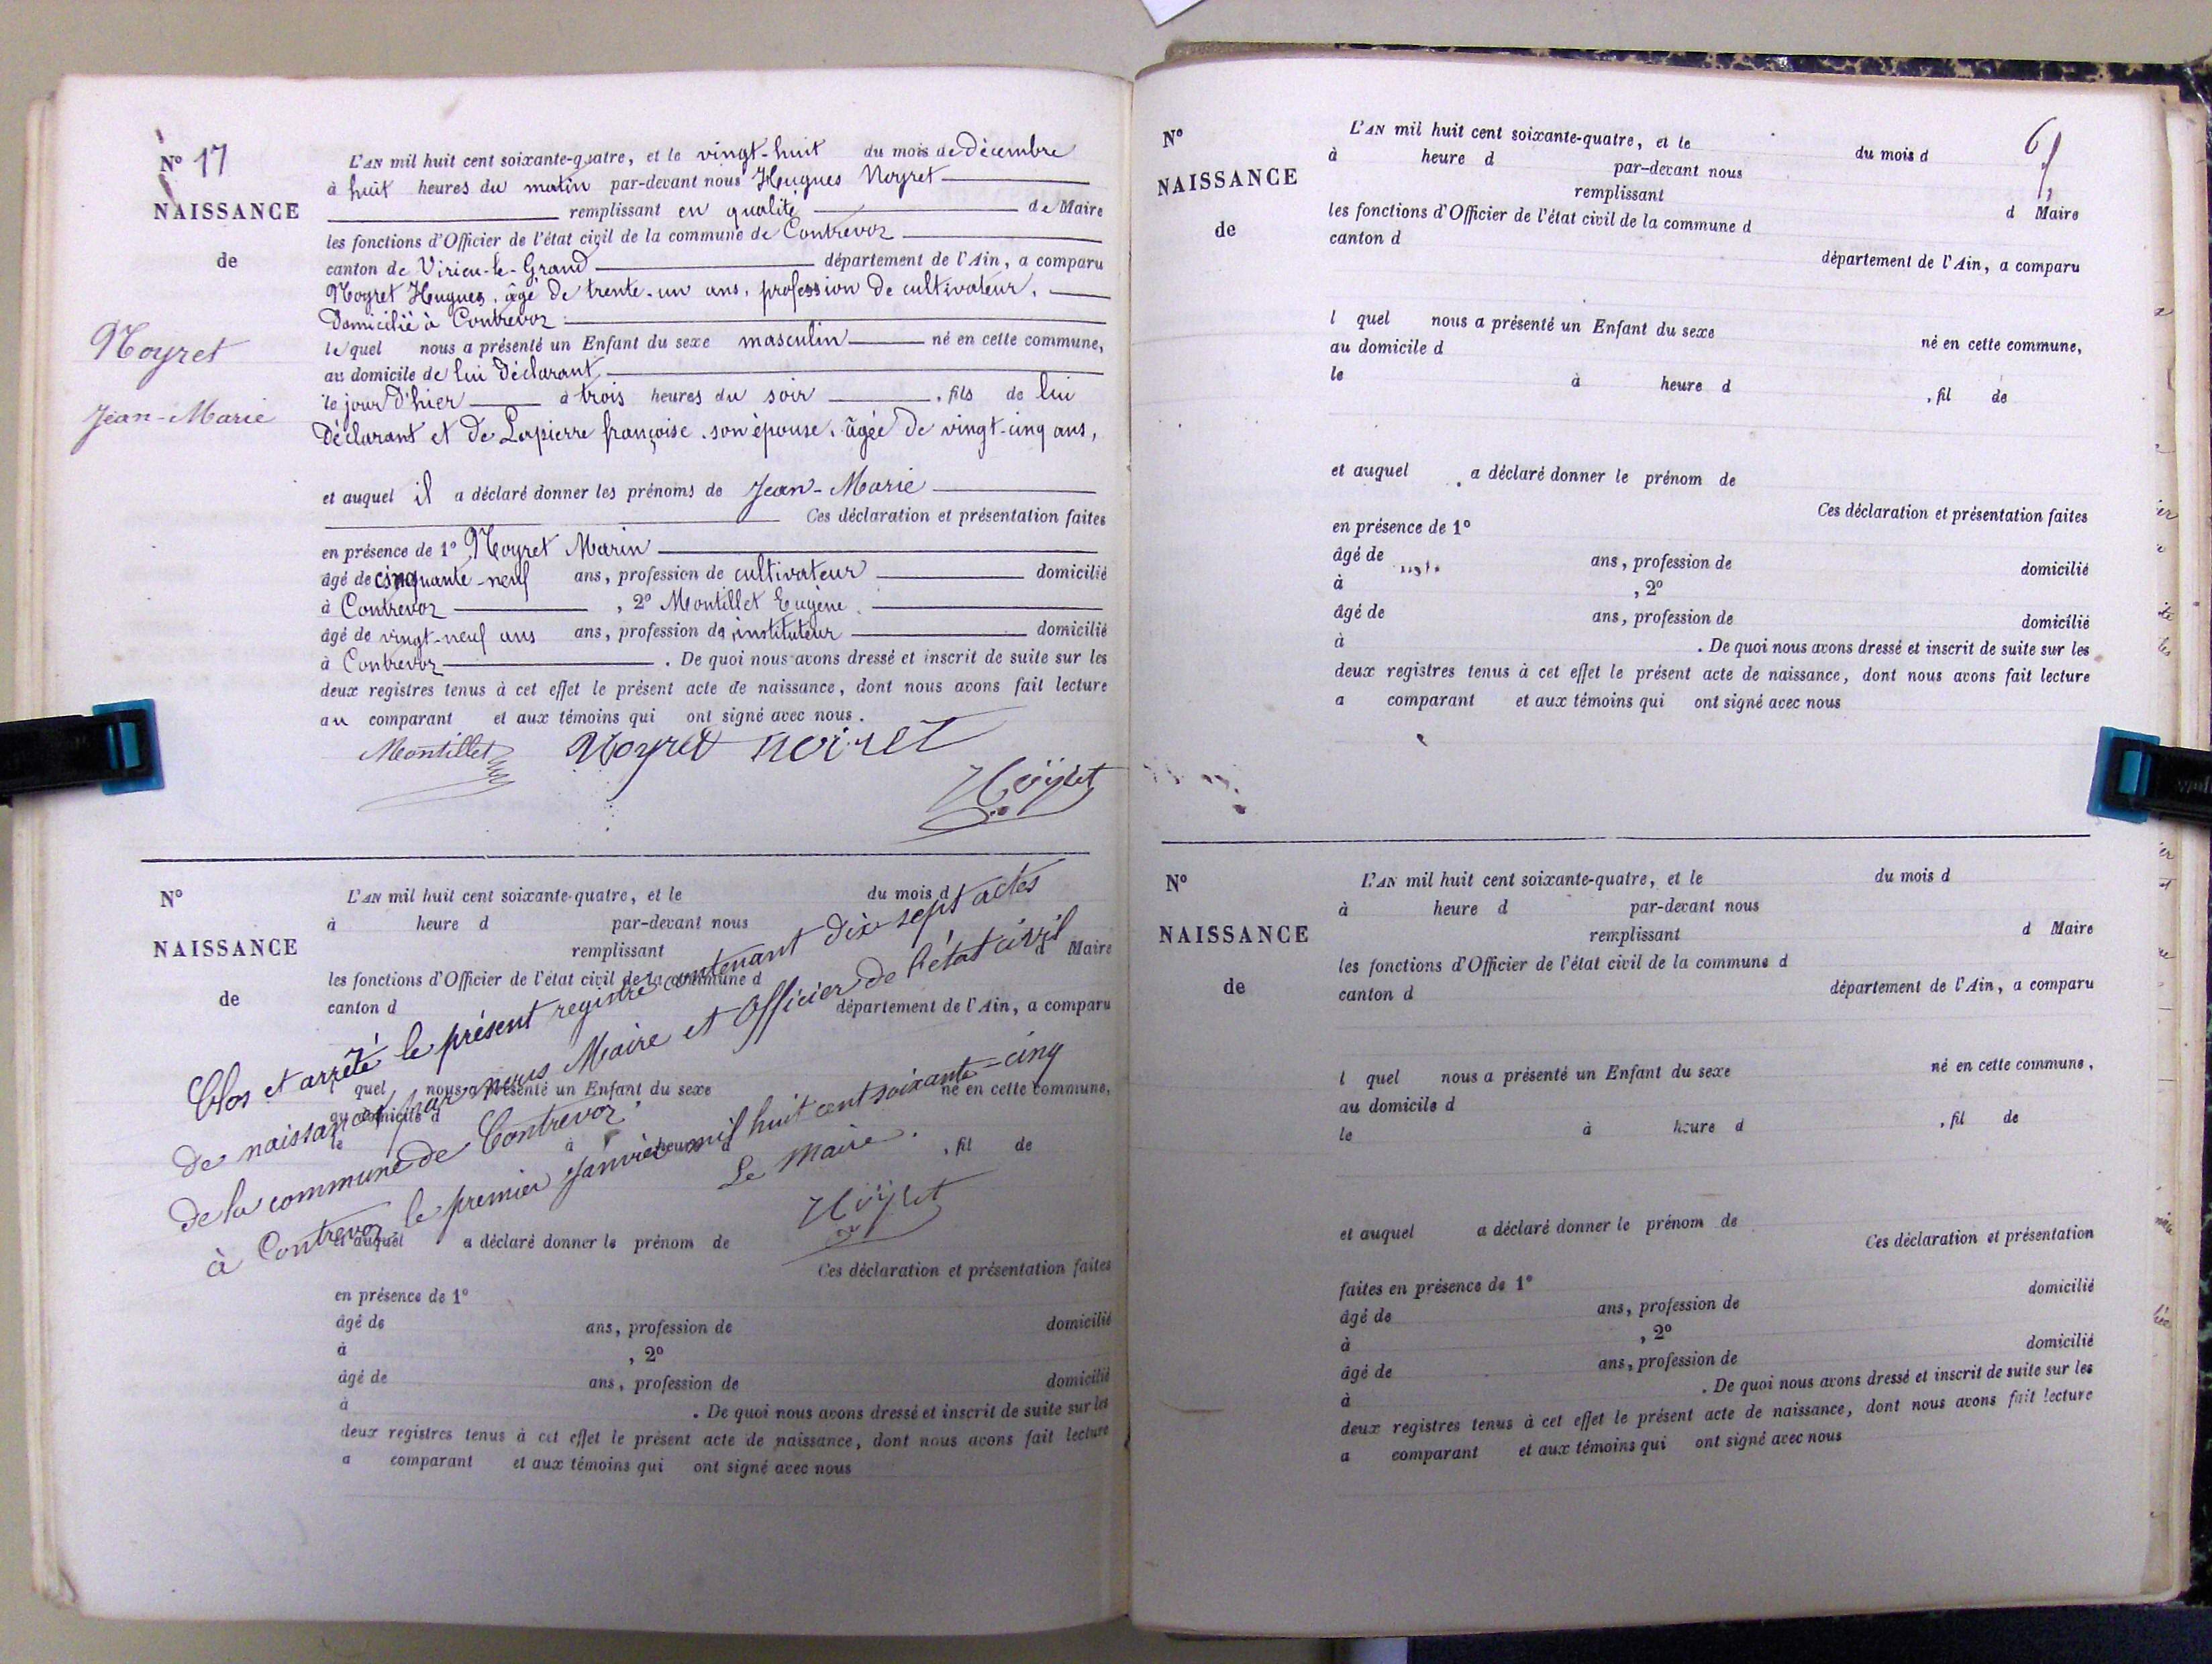 N° 17
NAISSANCE
de
Noyret
Jean-Marie
L'AN mil huit cent soixante-quatre, et le vingt-huit du mois de Décembre
à huit heures du matin par-devant nous Hugues Noyret
remplissant en qualité de Maire
les fonctions d'Officier de l'état civil de la commune de Contrevoz
canton de Virieu-le-Grand département de l'Ain, a comparu
Noyret Hugues, âgé de trente-un ans, profession de cultivateur,
Domicilié à Contrevoz
lequel nous a présenté un Enfant du sexe masculin né en cette commune,
au domicile de lui Déclarant
le jour d'hier à trois heures du soir, fils de lui
Déclarant et de Lapierre françoise, son épouse, âgée de vingt-cinq ans,
et auquel il a déclaré donner les prénoms de Jean-Marie
Ces déclaration et présentation faites
en présence de 1° Noyret Marin
âgé de cinquante-neuf ans, profession de cultivateur domicilié
à Contrevoz, 2° Montillet Eugène
âgé de vingt-neuf ans ans, profession de instituteur domicilié
à Contrevoz. De quoi nous avons dressé et inscrit de suite sur les
deux registres tenus à cet effet le présent acte de naissance, dont nous avons fait lecture
au comparant et aux témoins qui ont signé avec nous.
Montillet Noyret noiret
Noyret
N°
NAISSANCE
de
L'AN mil huit cent soixante-quatre, et le du mois d
à heure d par-devant nous
remplissant d Maire
les fonctions d'Officier de l'état civil de la commune d
canton d département de l'Ain, a comparu
quel nous a présenté un Enfant du sexe né en cette commune,
au domicile d
le à heure d, fil de
et auquel a déclaré donner le prénom de
Ces déclaration et présentation faites
en présence de 1°
âgé de ans, profession de domicilié
à , 2°
âgé de ans, profession de domicilié
à . De quoi nous avons dressé et inscrit de suite sur les
deux registres tenus à cet effet le présent acte de naissance, dont nous avons fait lecture
a comparant et aux témoins qui ont signé avec nous
Clos et arrêté le présent registre contenant dix sept actes
de naissances par nous Maire et Officier de l'état civil
de la commune de Contrevoz.
à Contrevoz le premier Janvier mil huit cent soixante-cinq
Le Maire.
Noyret
N°
NAISSANCE
de
L'AN mil huit cent soixante-quatre, et le du mois d
à heure d par-devant nous
remplissant d Maire
les fonctions d'Officier de l'état civil de la commune d
canton d département de l'Ain, a comparu
l quel nous a présenté un Enfant du sexe né en cette commune,
au domicile d
le à heure d , fil de
et auquel a déclaré donner le prénom de
Ces déclaration et présentation faites
en présence de 1°
âgé de ans, profession de domicilié
à , 2°
âgé de ans, profession de domicilié
à . De quoi nous avons dressé et inscrit de suite sur les
deux registres tenus à cet effet le présent acte de naissance, dont nous avons fait lecture
a comparant et aux témoins qui ont signé avec nous
N°
NAISSANCE
de
L'AN mil huit cent soixante-quatre, et le du mois d
à heure d par-devant nous
remplissant d Maire
les fonctions d'Officier de l'état civil de la commune d
canton d département de l'Ain, a comparu
l quel nous a présenté un Enfant du sexe né en cette commune,
au domicile d
le à heure d , fil de
et auquel a déclaré donner le prénom de
Ces déclaration et présentation
faites en présence de 1° domicilié
âgé de ans, profession de
à , 2° domicilié
âgé de ans, profession de
à . De quoi nous avons dressé et inscrit de suite sur les
deux registres tenus à cet effet le présent acte de naissance, dont nous avons fait lecture
a comparant et aux témoins qui ont signé avec nous